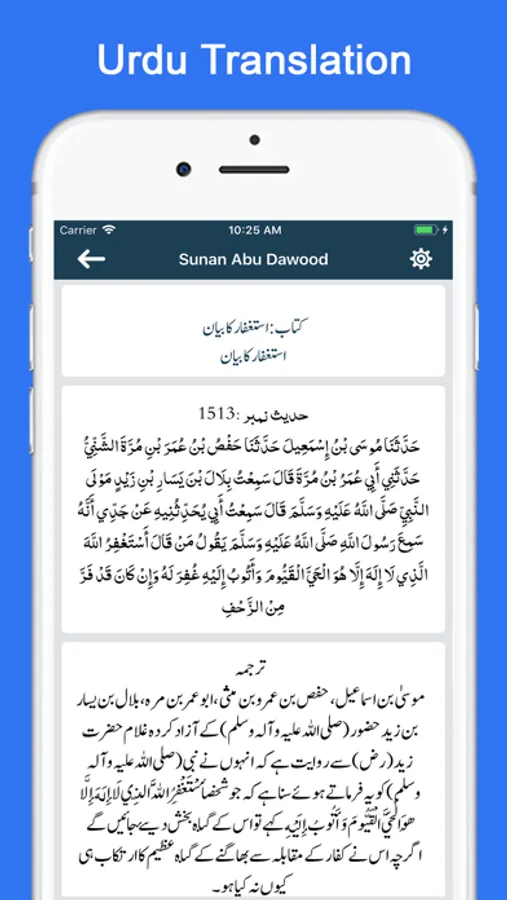 Urdu Translation
Carrier 10:25 AM
Sunan Abu Dawood
کتاب: استغفار کا بیان
استغفار کا بیان
حدیث نمبر :1513
حَدَّثَنَا مُوسَى بْنُ إِسْمَعِيلَ حَدَّثَنَا حَفْصُ بْنُ عُمَرَ بْنِ مُرَّةَ الشَّنِّيُّ
حَدَّثَنِي أَبِي عُمَرُ بْنُ مُرَّةَ قَالَ سَمِعْتُ بِلَالَ بْنَ يَسَارِ بْنِ زَيْدٍ مَوْلَى
النَّبِيِّ صَلَّى اللَّهُ عَلَيْهِ وَسَلَّمَ قَالَ سَمِعْتُ أَبِي يُحَدِّثُنِيهِ عَنْ جَدِّي أَنَّهُ
سَمِعَ رَسُولَ اللَّهِ صَلَّى اللَّهُ عَلَيْهِ وَسَلَّمَ يَقُولُ مَنْ قَالَ أَسْتَغْفِرُ اللَّهَ
الَّذِي لَا إِلَهَ إِلَّا هُوَ الْحَيَّ الْقَيُّومَ وَأَتُوبُ إِلَيْهِ غُفِرَ لَهُ وَإِنْ كَانَ قَدْ فَرَّ
مِنْ الزَّحْفِ
ترجمہ
موسیٰ بن اسماعیل، حفص بن عمرو بن مثی، ابوعمر بن مرہ، بلال بن یسار
بن زید حضور (صلی اللہ علیہ وآلہ وسلم) کے آزاد کردہ غلام حضرت
زید (رض) سے روایت ہے کہ انہوں نے نبی (صلی اللہ علیہ وآلہ
وسلم) کو یہ فرماتے ہوئے سنا ہے کہ جو شخص أَسْتَغْفِرُ اللَّهَ الَّذِي لَا إِلَهَ إِلَّا
هُوَ الْحَيَّ الْقَيُّومَ وَأَتُوبُ إِلَيْهِ کہے تو اس کے گناہ بخش دیے جائیں گے
اگرچہ اس نے کفار کے مقابلہ سے بھاگنے کے گناہ عظیم کا ارتکاب ہی
کیوں نہ کیا ہو۔